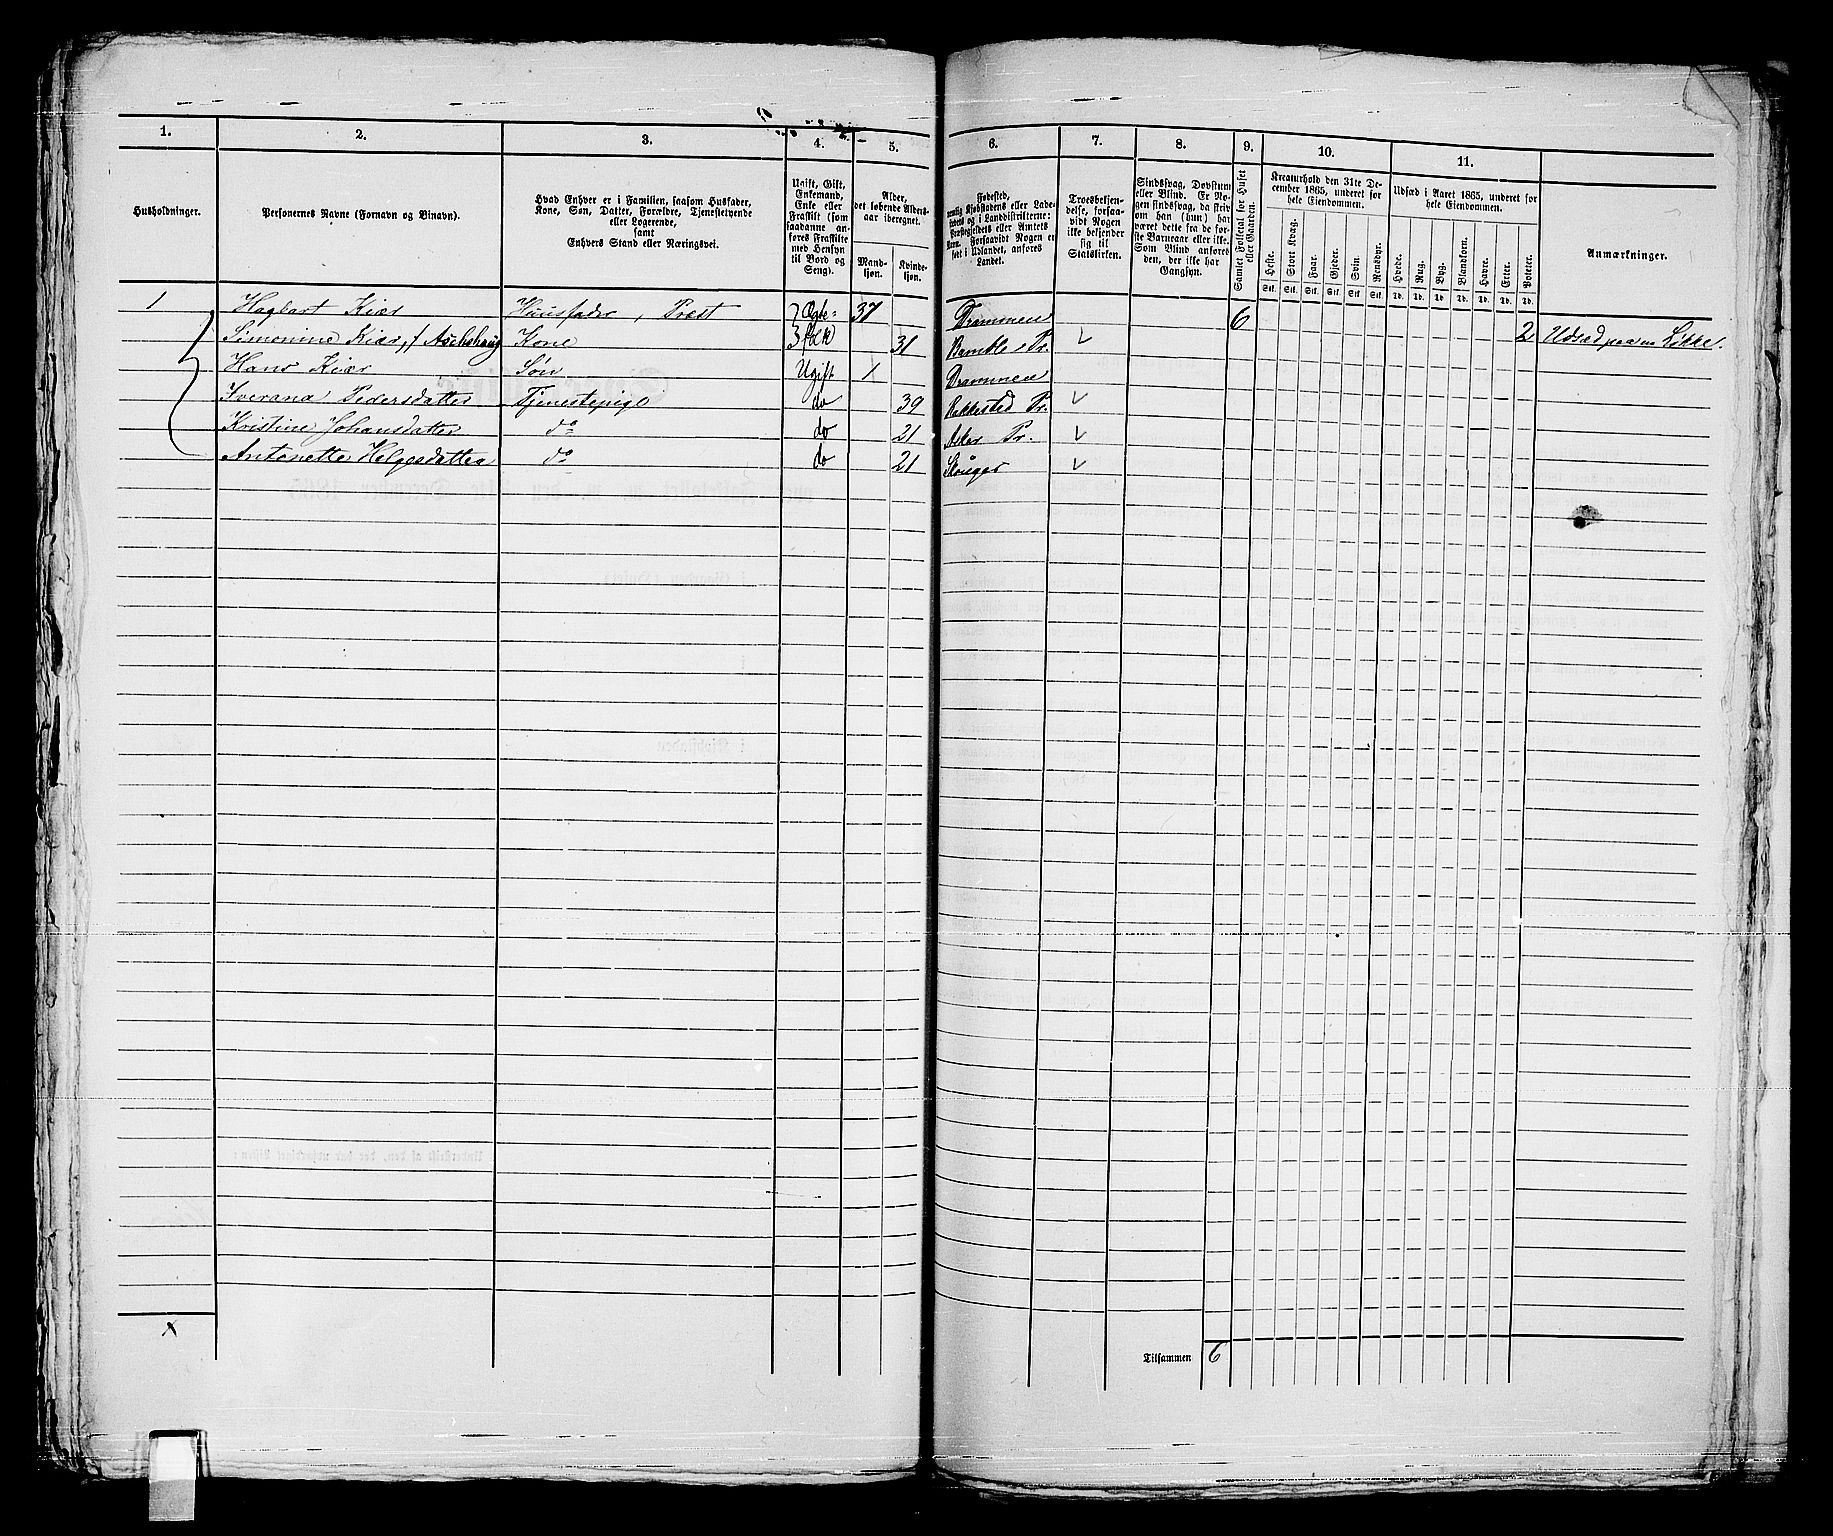 1. 2. 3. 4. 5. 6. 7. 8. 9. 10. 11.
Husholdninger.
Personernes Navne (Fornavn og Binavn).
Hvad Enhver er i Familien, saasom Husfader,
Kone, Søn, Datter, Forældre, Tjenestetyende
eller Logerende,
samt
Enhvers Stand eller Næringsvei.
Ugift, Gift,
Enkemand,
Enke eller
Fraskilt (som
saadanne an-
føres Fraskilte
med Hensyn
til Bord og
Seng).
Alder,
det løbende Alders-
aar iberegnet.
Mand-
kjøn.
Kvinde-
kjøn.
Fødested,
nemlig Kjøbstadens eller Lade-
stedets og i Landdistrikterne:
Præstegjeldets eller Amtets
Navn. Forsaavidt Nogen er
født i Udlandet, anføres
Landet.
Troesbekjen-
delse, forsaa-
vidt Nogen
ikke bekjender
sig til
Statskirken.
Sindssvag, Døvstum
eller Blind. Er No-
gen sindssvag, da skriv
om han (hun) har
været dette fra de før-
ste Barneaar eller ikke.
Som Blind anføres
den, der ikke har
Gangsyn.
Samlet Folketal for Huset
eller Gaarden.
Kreaturhold den 31te De-
cember 1865, underet for
hele Eiendommen.
Heste. Stort Kvæg. Faar. Gjeder. Svin. Rensdyr.
Stk. Stk. Stk. Stk. Stk. Stk.
Udsæd i Aaret 1865, underet for
hele Eiendommen.
Hvede. Rug. Byg. Blandkorn. Havre. Erter. Poteter.
Td. Td. Td. Td. Td. Td. Td.
Anmærkninger.
1 Hagbart Kiær Huusfader, Præst Ægte- 37 Drammen 6
Simonine Kiær, f. Aschehaug Kone folk 31 Bamble Pr. 2 Udsæd paa en Løkke.
Hans Kiær Søn Ugift 1 Drammen
Iverana Pedersdatter Tjenestepige do 39 Rakkestad Pr.
Kristine Johansdatter do do 21 Asker Pr.
Antonette Helgesdatter do do 21 Skouger
Tilsammen 6